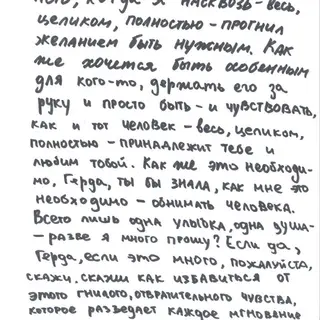 когда я насквозь - весь,
целиком, полностью - прогнил
желанием быть нужным. Как
же хочется быть особенным
для кого-то, держать его за
руку и просто быть - и чувствовать,
как и тот человек - весь, целиком,
полностью - принадлежит тебе и
любим тобой. Как же это необходи-
мо, Герда, ты бы знала, как мне это
необходимо - обнимать человека.
Всего лишь одна улыбка, одна душа -
- разве я много прошу? Если да,
Герда, если это много, пожалуйста,
скажи. скажи как избавиться от
этого гнилого, отвратительного чувства,
которое разъедает каждое мгновение